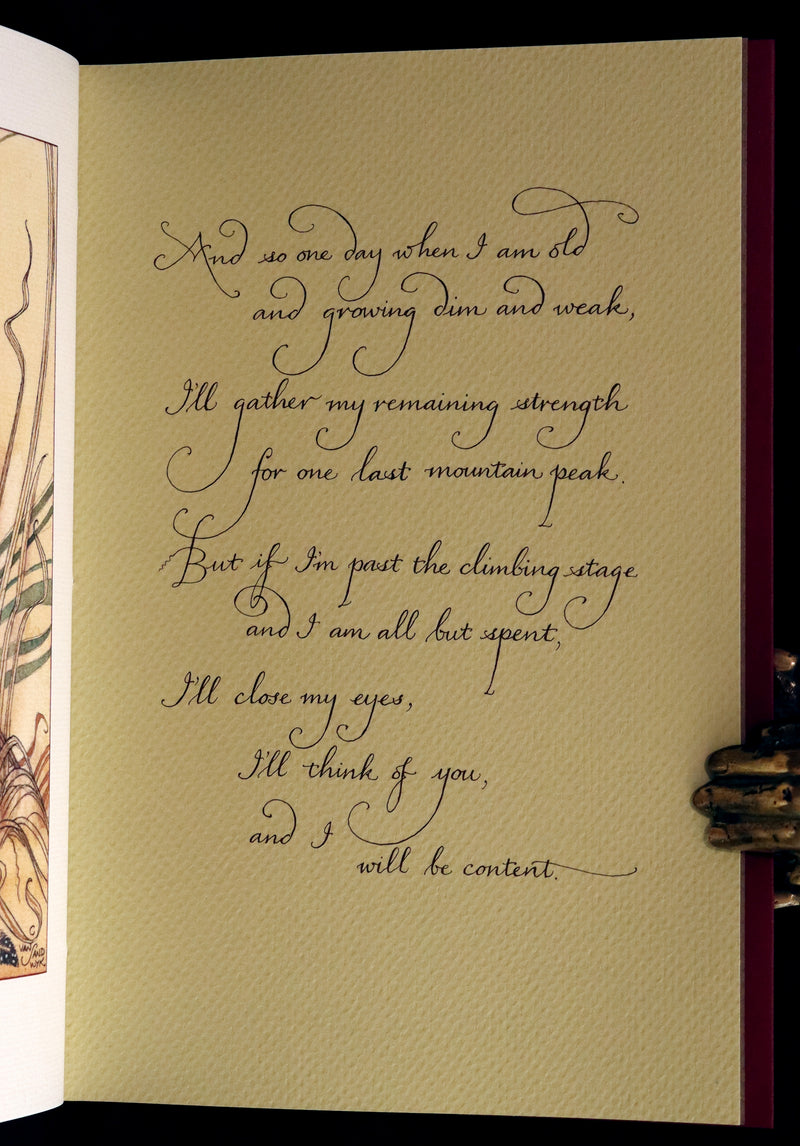 And so one day when I am old
and growing dim and weak,
I'll gather my remaining strength
for one last mountain peak.
But if I'm past the climbing stage
and I am all but spent,
I'll close my eyes,
I'll think of you,
and I
will be content.
C
VAN
SAND
WYK